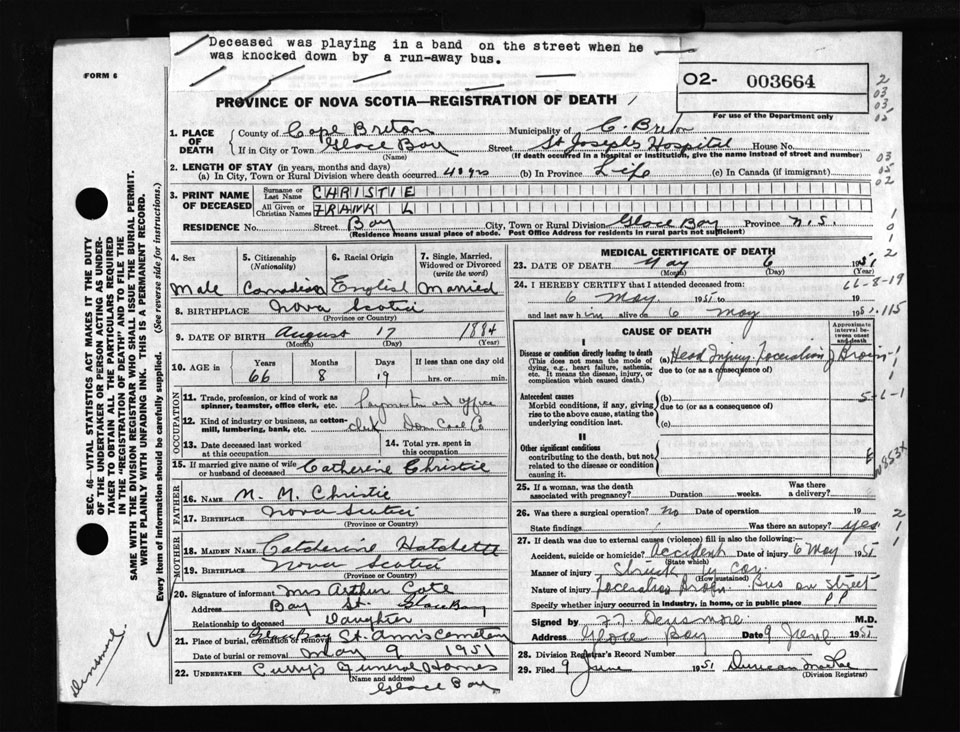 Deceased was playing in a band on the street when he
was knocked down by a run-away bus.
FORM 6
02- 003664
For use of the Department only
PROVINCE OF NOVA SCOTIA—REGISTRATION OF DEATH
1. PLACE OF DEATH County of Cape Breton Municipality of C. Breton
If in City or Town Glace Bay Street St Josephs Hospital House No.
(Name) (If death occurred in a hospital or institution, give the name instead of street and number)
2. LENGTH OF STAY (in years, months and days)
(a) In City, Town or Rural Division where death occurred 40 yrs (b) In Province Life (c) In Canada (if immigrant)
3. PRINT NAME OF DECEASED Surname or Last Name CHRISTIE
All Given or Christian Names FRANK L
RESIDENCE No. Street Bay City, Town or Rural Division Glace Bay Province N.S.
(Residence means usual place of abode. Post Office Address for residents in rural parts not sufficient)
4. Sex 5. Citizenship (Nationality) 6. Racial Origin 7. Single, Married, Widowed or Divorced (write the word)
Male Canadian English Married
8. BIRTHPLACE Nova Scotia
(Province or Country)
9. DATE OF BIRTH August 17 1884
(Month) (Day) (Year)
10. AGE in Years Months Days If less than one day old
66 8 19 hrs. or min.
OCCUPATION
11. Trade, profession, or kind of work as spinner, teamster, office clerk, etc.
12. Kind of industry or business, as cotton-mill, lumbering, bank, etc. clerk Dom Coal Co
13. Date deceased last worked at this occupation
14. Total yrs. spent in this occupation
15. If married give name of wife or husband of deceased Catherine Christie
FATHER
16. NAME M. M. Christie
17. BIRTHPLACE Nova Scotia
(Province or Country)
MOTHER
18. MAIDEN NAME Catherine Hatchette
19. BIRTHPLACE Nova Scotia
(Province or Country)
20. Signature of informant Mrs Arthur Cote
Address Bay St. Glace Bay
Relationship to deceased Daughter
21. Place of burial, cremation or removal Glace Bay St. Anns Cemetery
Date of burial or removal May 9 1951
22. UNDERTAKER Curry's Funeral Homes
(Name and address) Glace Bay
MEDICAL CERTIFICATE OF DEATH
23. DATE OF DEATH May 6 1951
(Month) (Day) (Year)
24. I HEREBY CERTIFY that I attended deceased from:
6 May 1951 to 19
and last saw him alive on 6 May 1951
66-8-19
115
CAUSE OF DEATH
Approximate interval between onset and death
I
Disease or condition directly leading to death (a) Head Injury. Laceration of Brain
(This does not mean the mode of dying, e.g., heart failure, asthenia, etc. It means the disease, injury, or complication which caused death.)
due to (or as a consequence of)
Antecedent causes
Morbid conditions, if any, giving rise to the above cause, stating the underlying condition last.
(b)
due to (or as a consequence of)
(c)
II
Other significant conditions
contributing to the death, but not related to the disease or condition causing it
25. If a woman, was the death associated with pregnancy? Duration weeks. Was there a delivery?
26. Was there a surgical operation? No Date of operation 19
State findings Was there an autopsy? yes
27. If death was due to external causes (violence) fill in also the following:—
Accident, suicide or homicide? Accident Date of injury 6 May 1951
(State which)
Manner of injury Struck by car.
(How sustained)
Nature of injury Laceration Brain. Bus on Street
Specify whether injury occurred in industry, in home, or in public place P.P.
Signed by F. J. Densmore M.D.
Address Glace Bay Date 9 June 1951
28. Division Registrar's Record Number
29. Filed 9 June 1951 Duncan MacRae
(Division Registrar)
SEC. 46—VITAL STATISTICS ACT MAKES IT THE DUTY
OF THE UNDERTAKER OR PERSON ACTING AS UNDER-
TAKER TO OBTAIN ALL THE PARTICULARS REQUIRED
IN THE "REGISTRATION OF DEATH" AND TO FILE THE
SAME WITH THE DIVISION REGISTRAR WHO SHALL ISSUE THE BURIAL PERMIT.
WRITE PLAINLY WITH UNFADING INK. THIS IS A PERMANENT RECORD.
Every item of information should be carefully supplied. (See reverse side for instructions.)